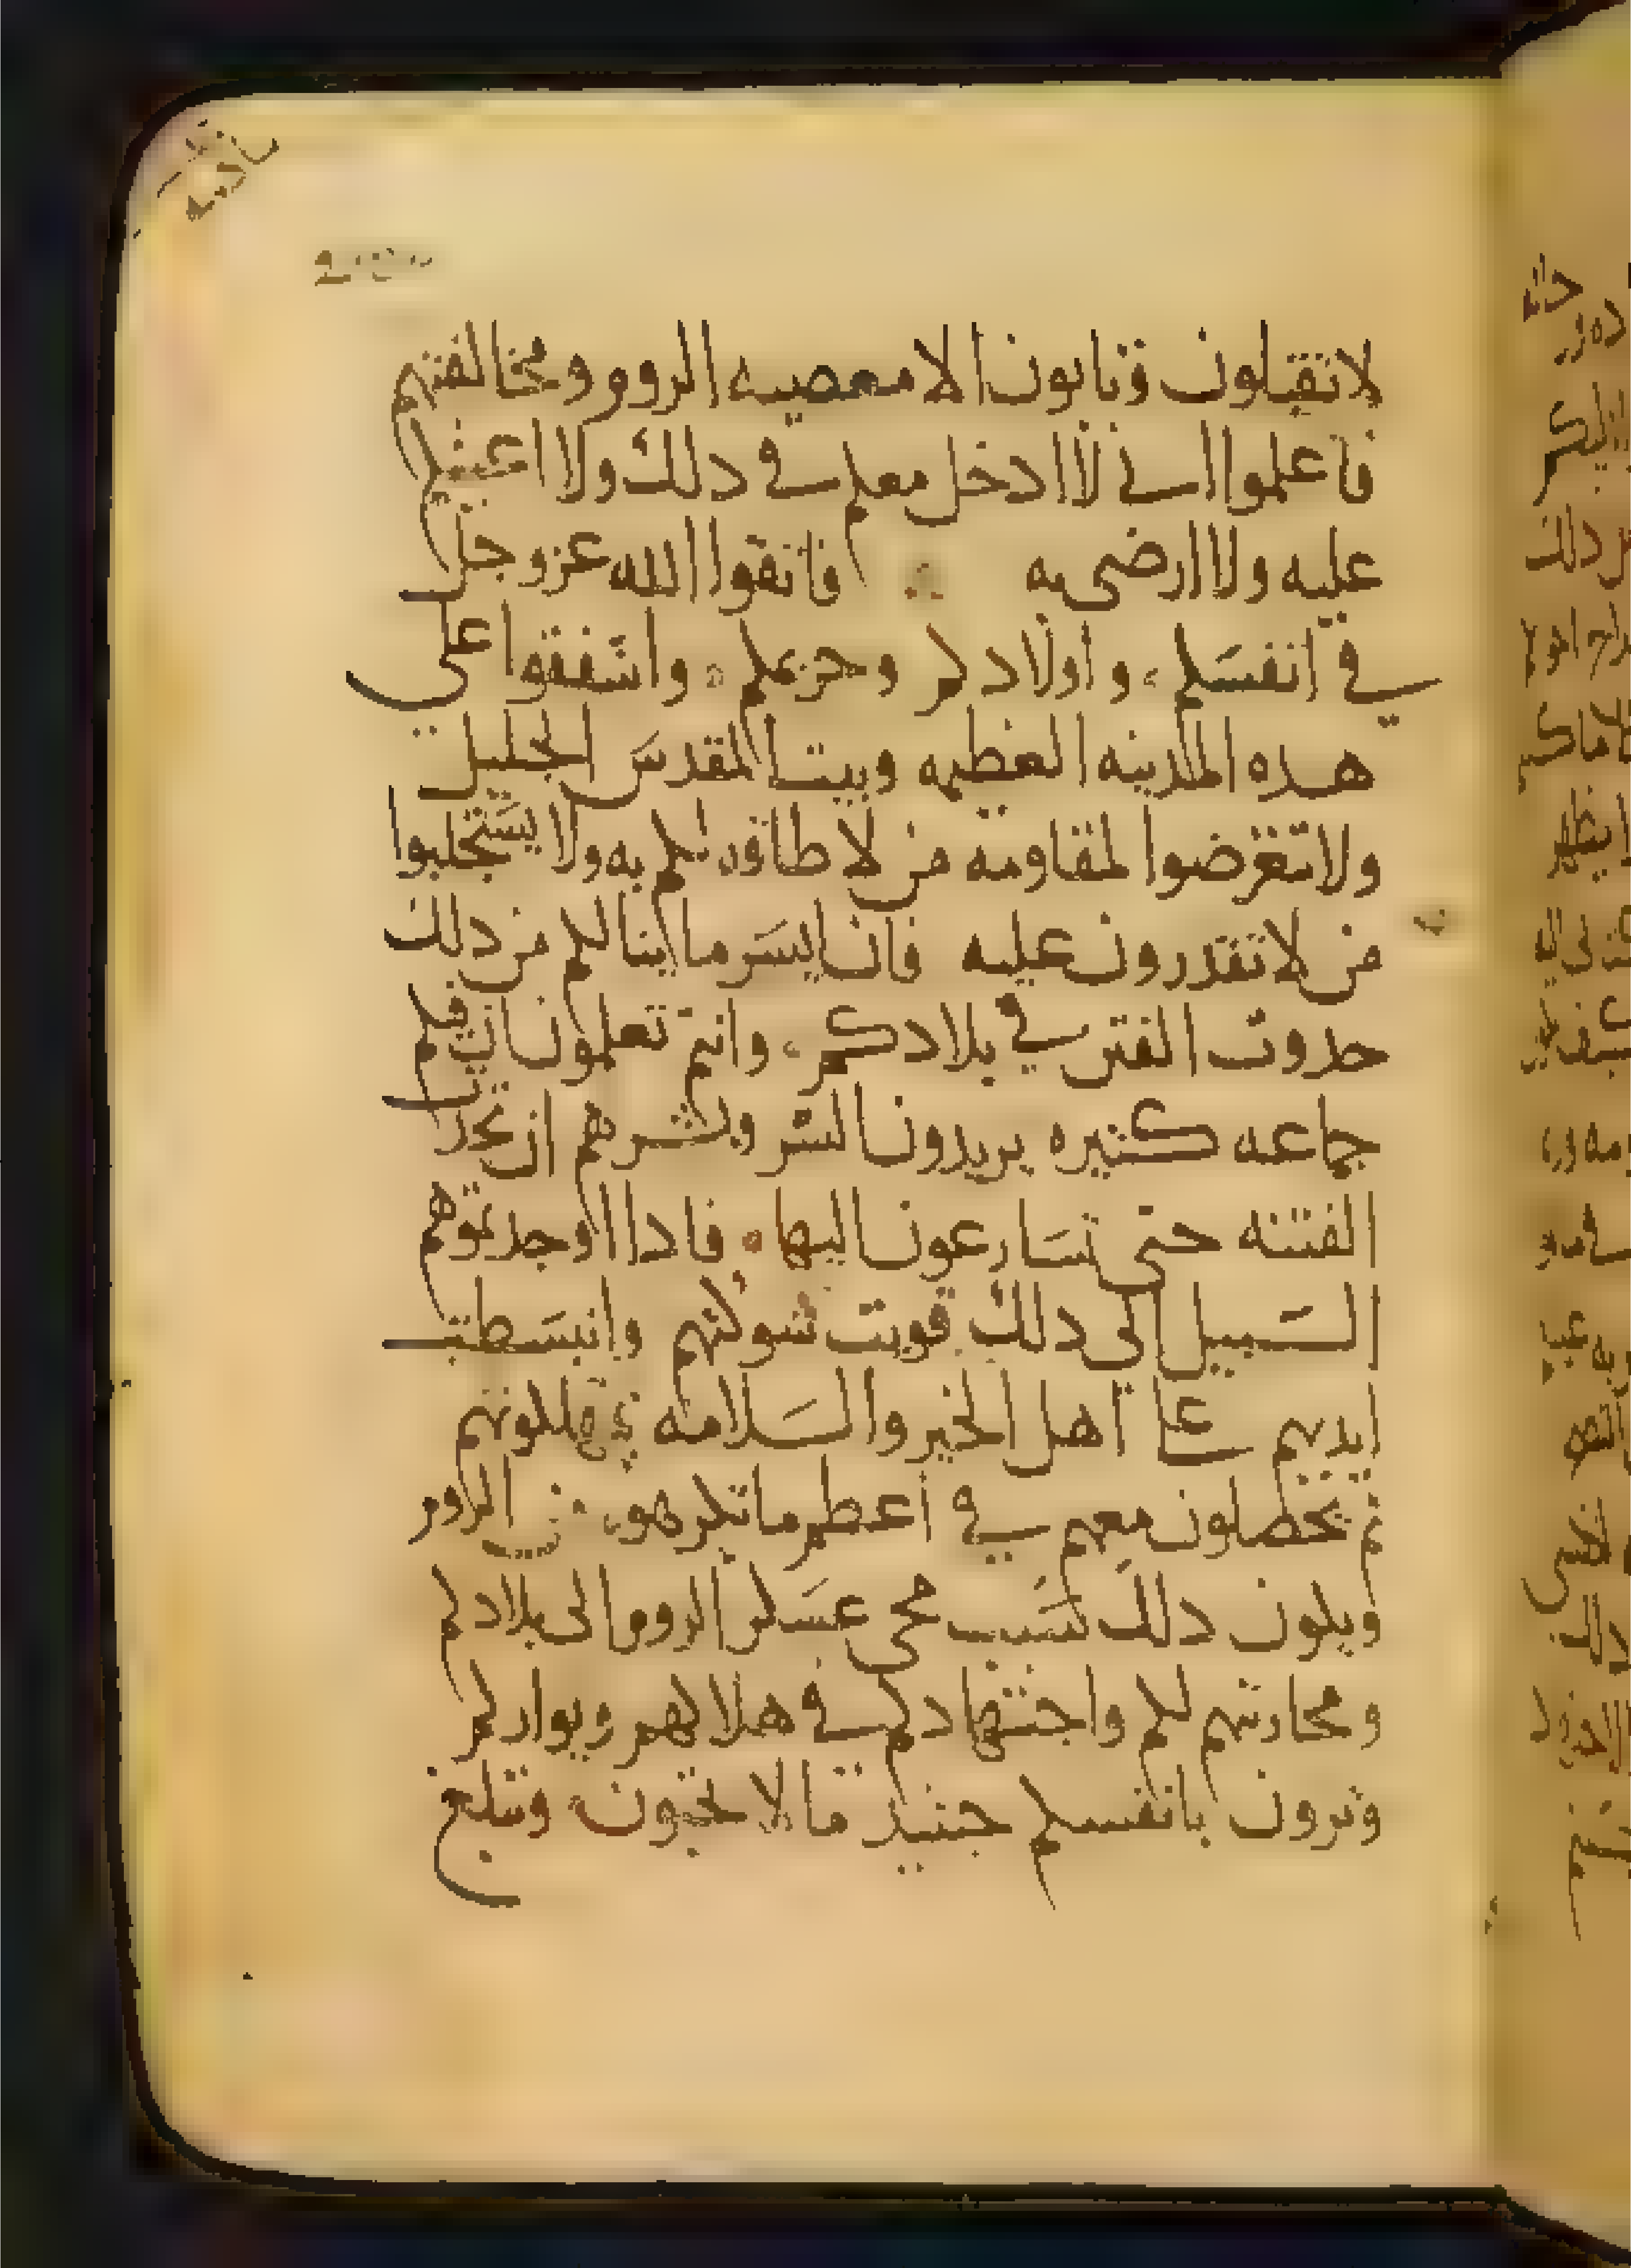 لا تقبلون وتابون الا معصيه الروم ومخالفتهم
فاعلموا انني لا ادخل معكم في دلك ولا اعينكم
عليه ولا ارضى به فاتقوا الله عز وجل
في انفسكم واولادكم وحريمكم واشفقوا على
هده المدينه العظيمه وبيت المقدس الجليل
ولا تتعرضوا لمقاومه من لا طاقه لكم به ولا تستجلبوا
من لا تقدرون عليه فان ايسر ما ينالكم من دلك
حدوث الفتن في بلادكم وانتم تعلمون ان فيكم
جماعه كثيره يريدون الشر ويسرهم ان تحدث
الفتنه حتى تسارعون اليها فادا وجدتموهم
السبيل الى دلك قويت شوكتهم وانبسطت
ايديهم على اهل الخير والسلامه
ثم تحصلون معهم في اعظم ما تكرهون من الروم
ويكون دلك سبب مجى عسكر الروم الى بلادكم
ومحاربتهم لكم واجتهادكم في هلاكهم وبواركم
وترون بانفسكم حينيد ما لا تحبون وتبلغ